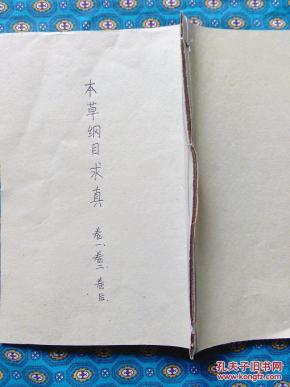 本草纲目求真
卷一、卷二、卷后.
孔夫子旧书网